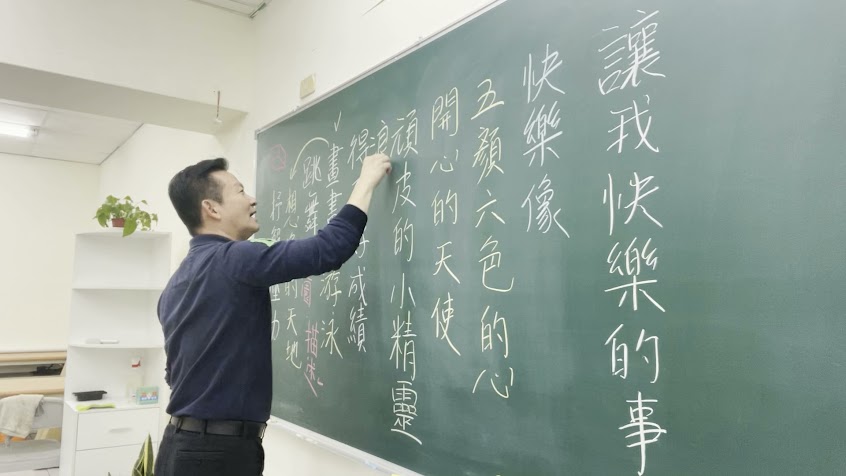 讓我快樂的事
快樂像
五顏六色的心
開心的天使
頑皮的小精靈
得 成績
畫 游泳
跳舞 描述
想 的天地